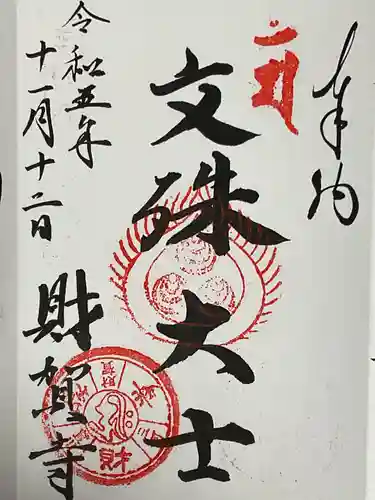 奉拝
文殊大士
令和五年
十一月十二日
財賀寺